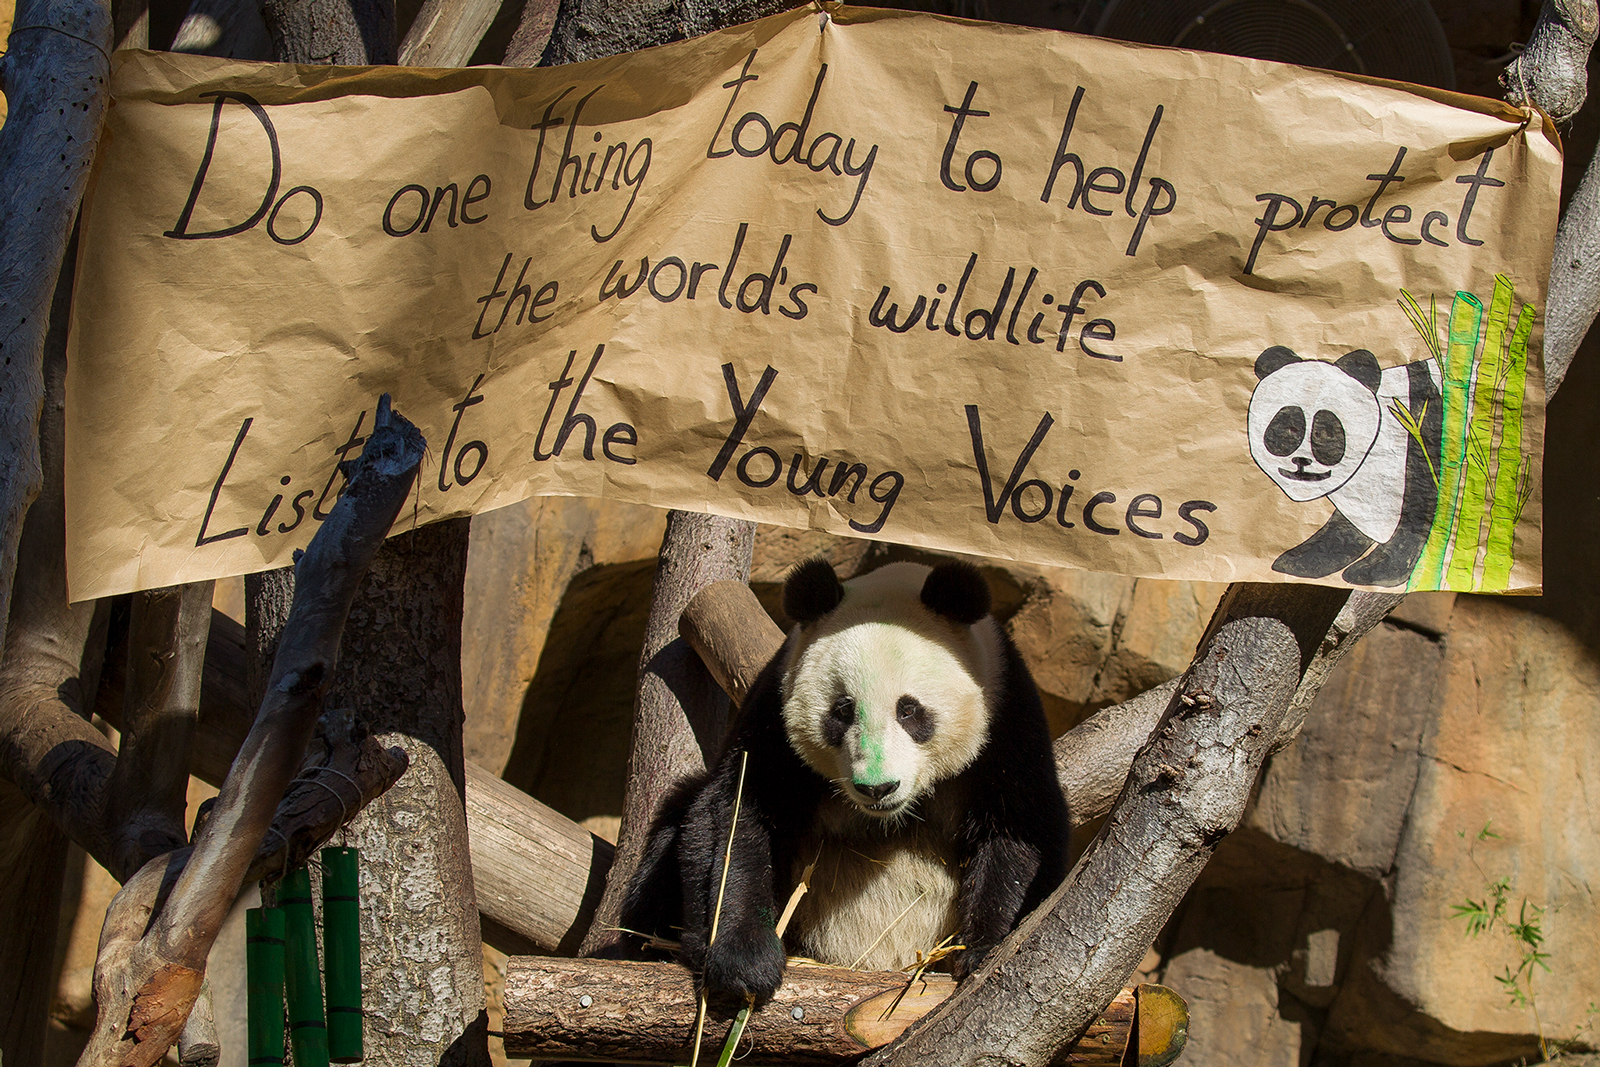 Do one thing today to help protect
the world's wildlife
to the Young Voices